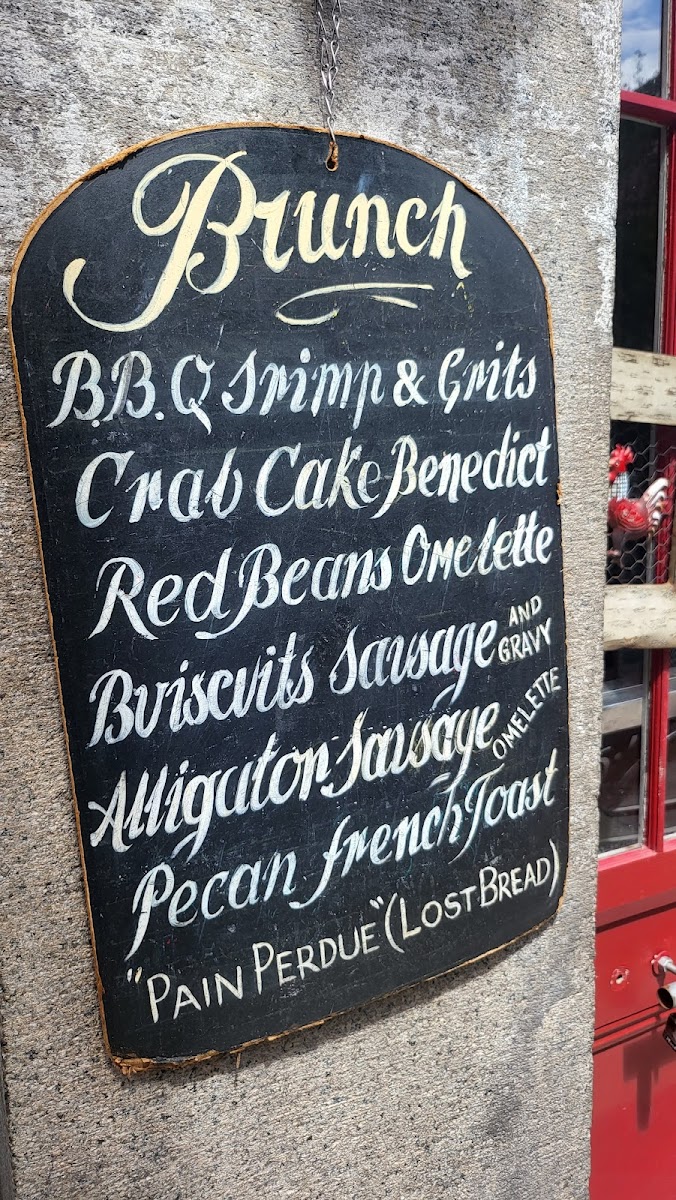 Brunch
B.B.Q Srimp & Grits
Crab Cake Benedict
Red Beans Omelette
Buiscuits Sausage AND GRAVY
Alligator Sausage OMELETTE
Pecan french Toast
"PAIN PERDUE" (LOST BREAD)